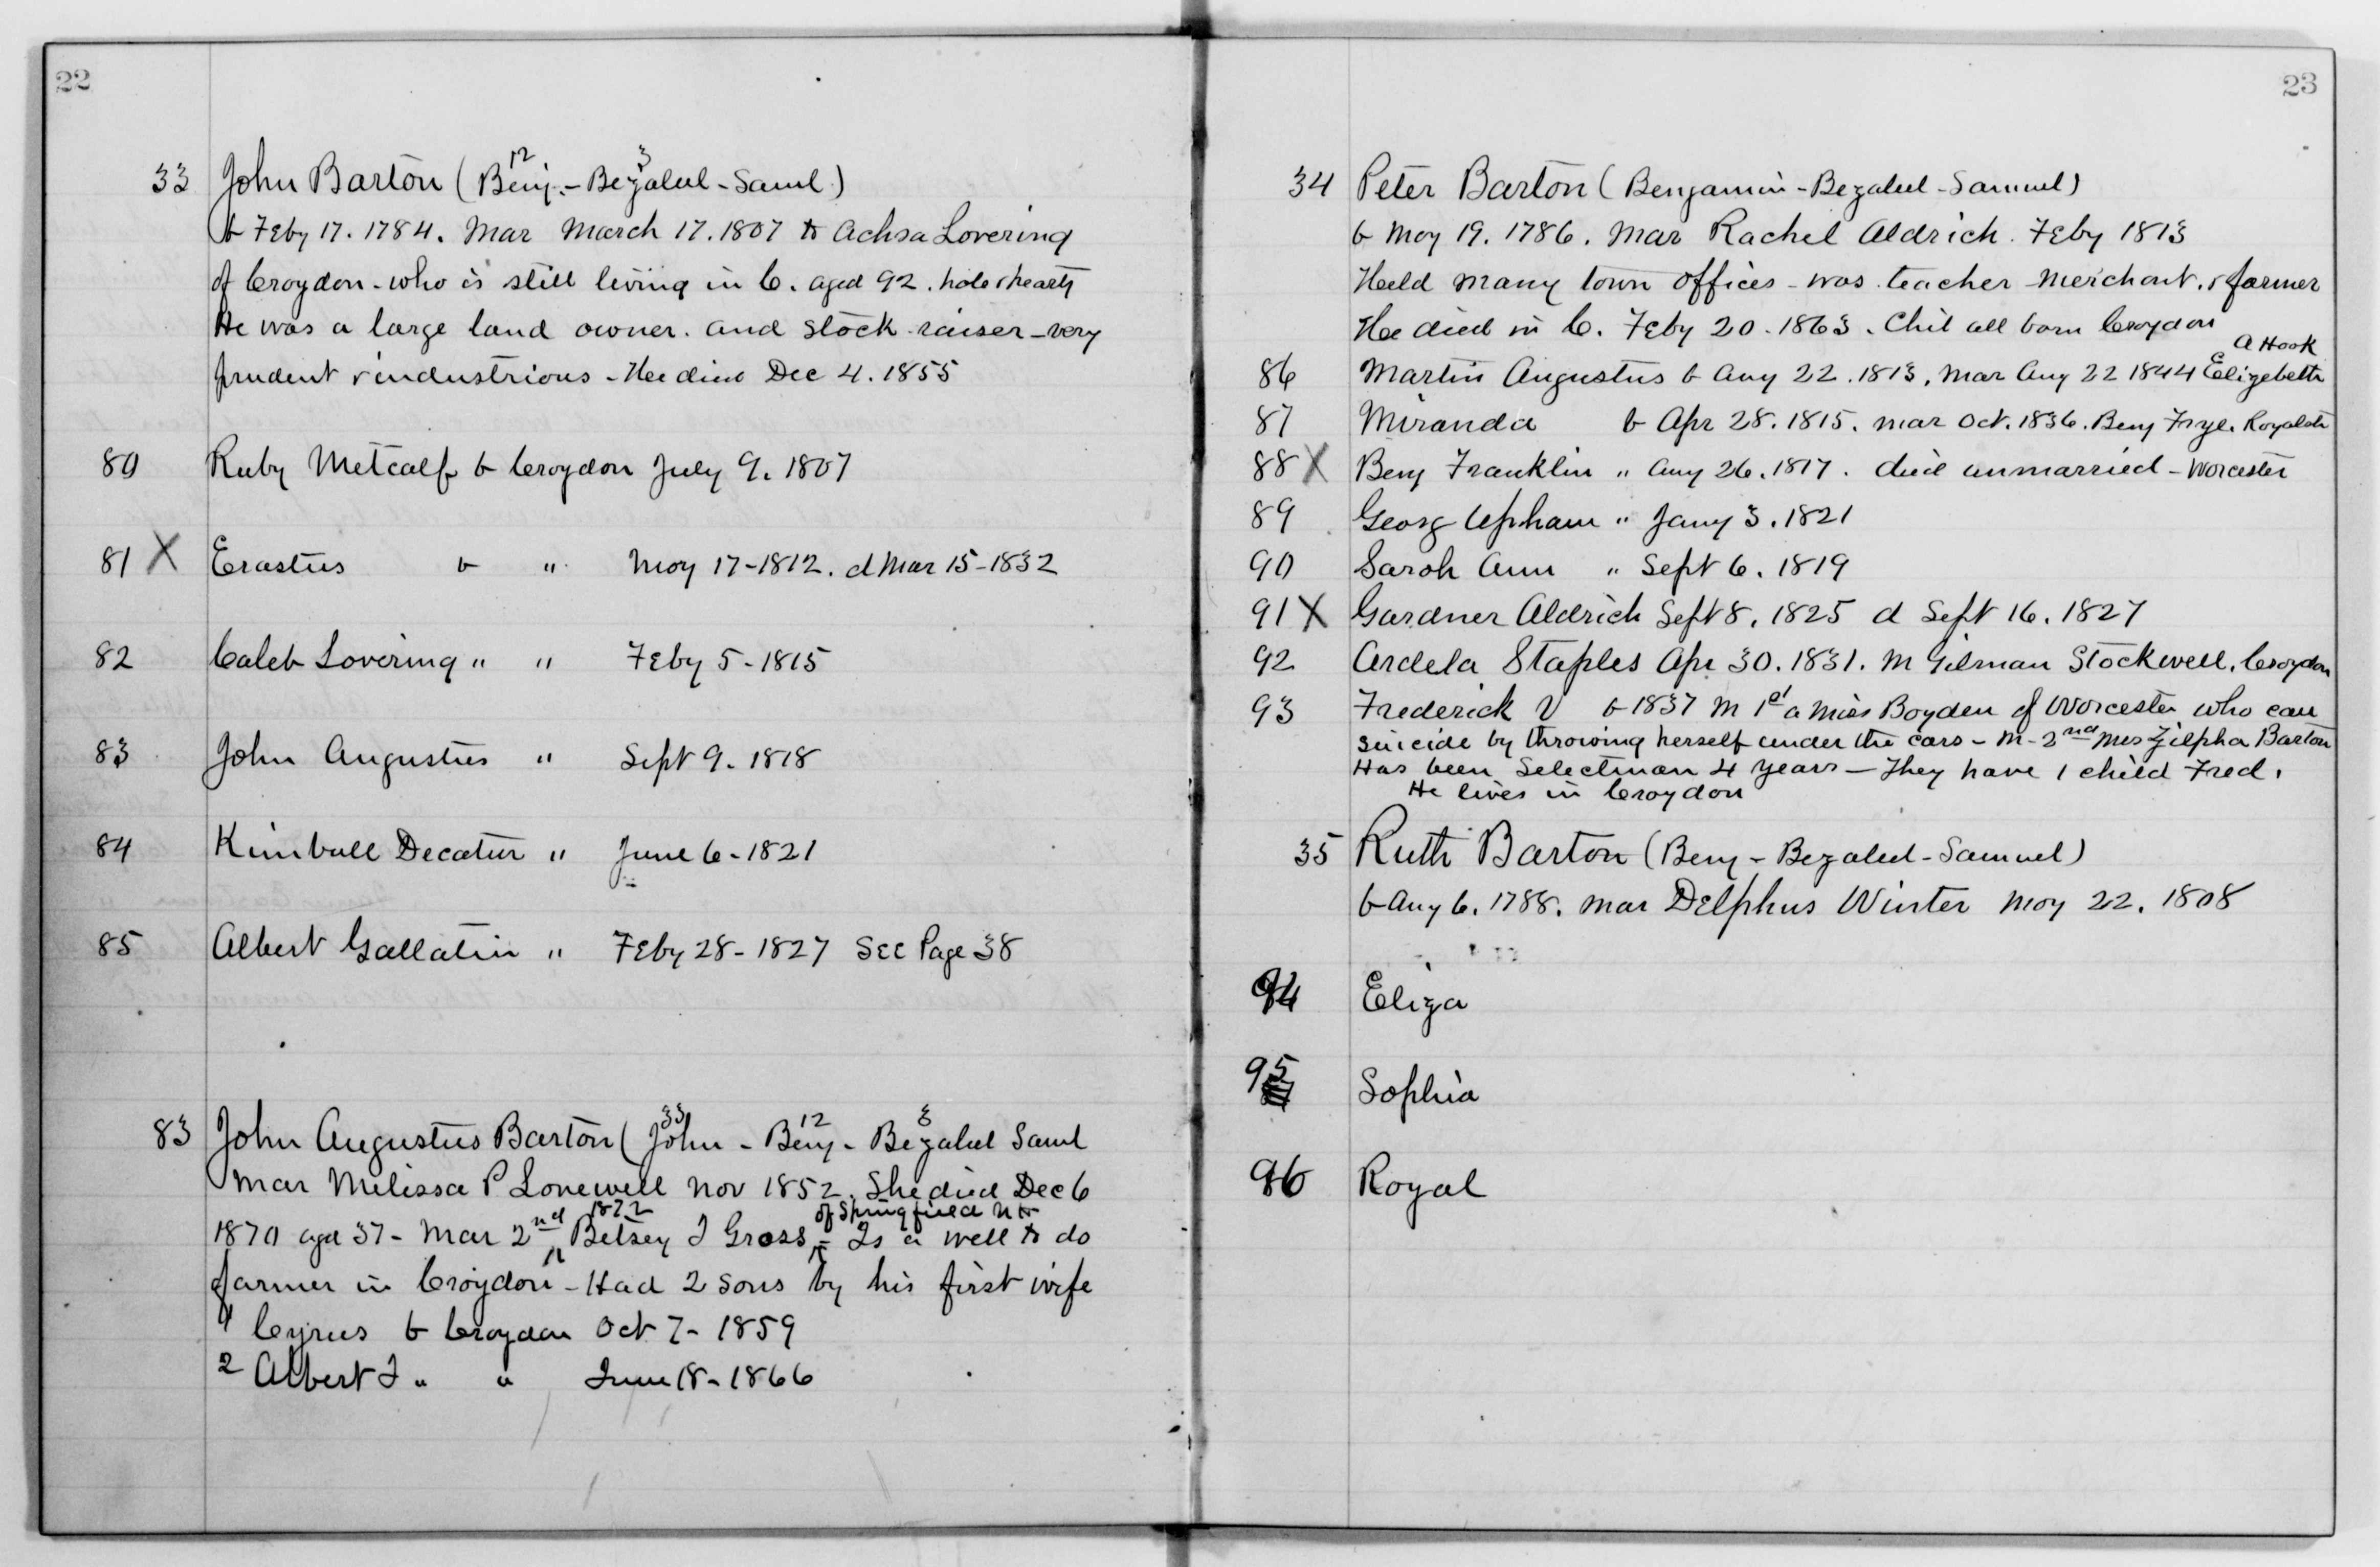 22
12 3
33 John Barton (Benj. - Bezaleel - Saml)
b Feby 17. 1784. Mar March 17. 1807 to Achsa Lovering
of Croydon - who is still living in C. aged 92. hale & hearty
He was a large land owner. and stock raiser - very
prudent & industrious - Hee died Dec 4. 1855
80 Ruby Metcalf b Croydon July 9. 1807
81 X Erastus b " May 17 - 1812. d Mar 15 - 1832
82 Caleb Lovering " " Feby 5 - 1815
83 John Augustus " Sept 9. 1818
84 Kimball Decatur " June 6 - 1821
85 Albert Gallatin " Feby 28 - 1827 See Page 38
33 12 3
83 John Augustus Barton (John - Benj - Bezaleel Saml
mar Melissa P Lovewell Nov 1852. She died Dec 6
1872 of Springfield NH
1870 age 37 - Mar 2nd Betsey J Gross - Is a well to do
farmer in Croydon - Had 2 sons by his first wife
1 Cyrus b Croydon Oct 7 - 1859
2 Albert J " " June 18 - 1866
23
34 Peter Barton (Benjamin - Bezaleel - Samuel)
b May 19. 1786. Mar Rachel Aldrich. Feby 1813
Held many town offices - was teacher - merchant. & farmer
Hee died in C. Feby 20. 1863. Chil all born Croydon
A Hook
86 Martin Augustus b Aug 22. 1813, mar Aug 22 1844 Elizebeth
87 Miranda b Apr 28. 1815. mar Oct. 1836. Benj Frye. Royalston
88 X Benj Franklin " Aug 26. 1817. died unmarried - Worcester
89 Georg Upham " Jany 3. 1821
90 Sarah Ann " Sept 6. 1819
91 X Gardner Aldrich Sept 8. 1825 d Sept 16. 1827
92 Ardela Staples Apr 30. 1831. m Gilman Stockwell. Croydon
93 Frederick V b 1837 m 1st a Miss Boyden of Worcester who com
suicide by throwing herself under the cars - m - 2nd Mrs Zilpha Barton
Has been Selectman 4 years - They have 1 child Fred.
He lives in Croydon
35 Ruth Barton (Benj - Bezaleel - Samuel)
b Aug 6. 1788. mar Delphus Winter May 22. 1808
94 Eliza
95 Sophia
96 Royal